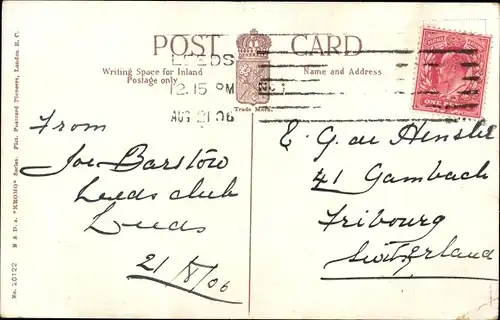 POST CARD
Writing Space for Inland
Postage only
Name and Address
Trade Mark.
LEEDS
12.15 PM
AUG 21 06
ONE PENNY
From
Joe Barstow
Leeds Club
Leeds
21/8/06
E. G. de
41 Gambach
Fribourg
Switzerland
No. 20122 B & D's. "KROMO" Series. Pict. Postcard Pioneers, London E.C.